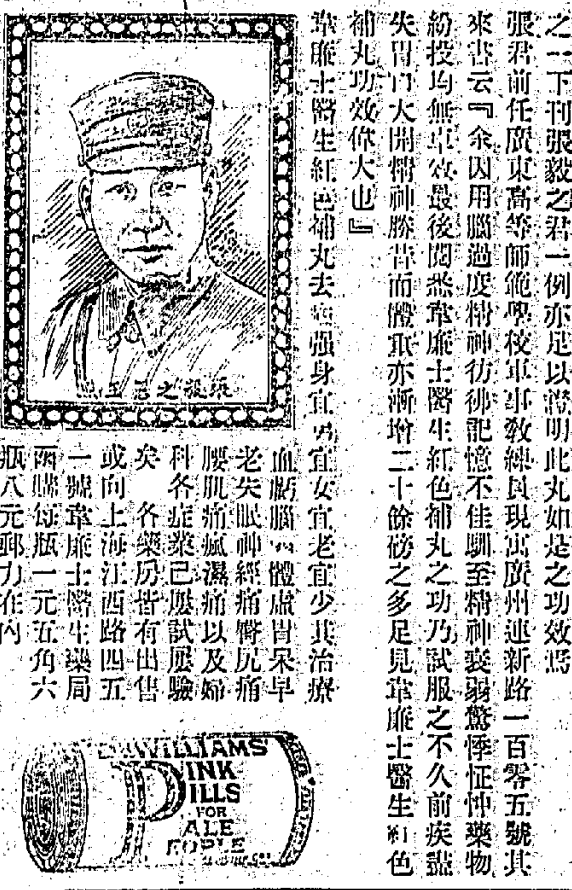 之一下刊張毅之君一例亦足以證明此丸如是之功效焉
張君前任廣東高等師範學校軍事教練員現寓廣州連新路一百零五號其
來書云『余因用腦過度精神彷彿記憶不佳馴至精神衰弱驚悸怔忡藥物
紛投均無卓效最後閱悉韋廉士醫生紅色補丸之功乃試服之不久前疾盡
失胃口大開精神勝昔而體重亦漸增二十餘磅之多足見韋廉士醫生紅色
補丸功效偉大也』
韋廉士醫生紅色補丸去病強身宜男宜女宜老宜少其治療
血虧腦弱體虛胃呆早
老失眠神經痛臀尻痛
腰肌痛瘋濕痛以及婦
科各症業已屢試屢驗
矣 各藥房皆有出售
或向上海江西路四五
一號韋廉士醫生藥局
函購每瓶一元五角六
瓶八元郵力在內
張毅之君玉
WILLIAMS'
PINK
PILLS
FOR
PALE
PEOPLE